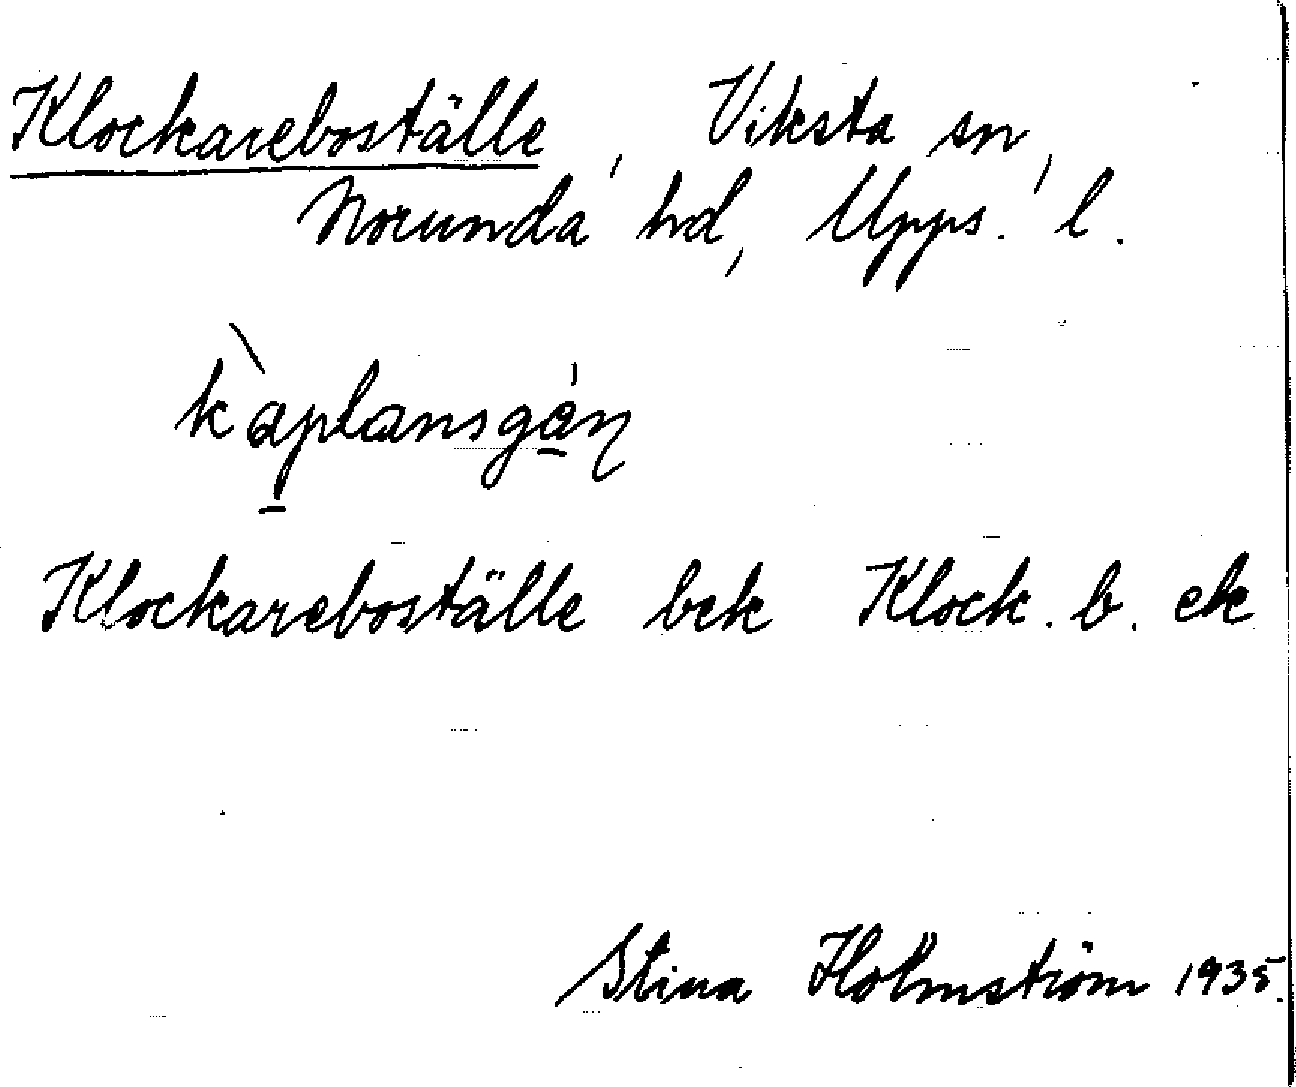 Klockareboställe, Viksta sn,
Norunda hd, Upps. l.
kàplansgán̩
Klockareboställe bek Klock. b. ek
Stina Holmström 1935.